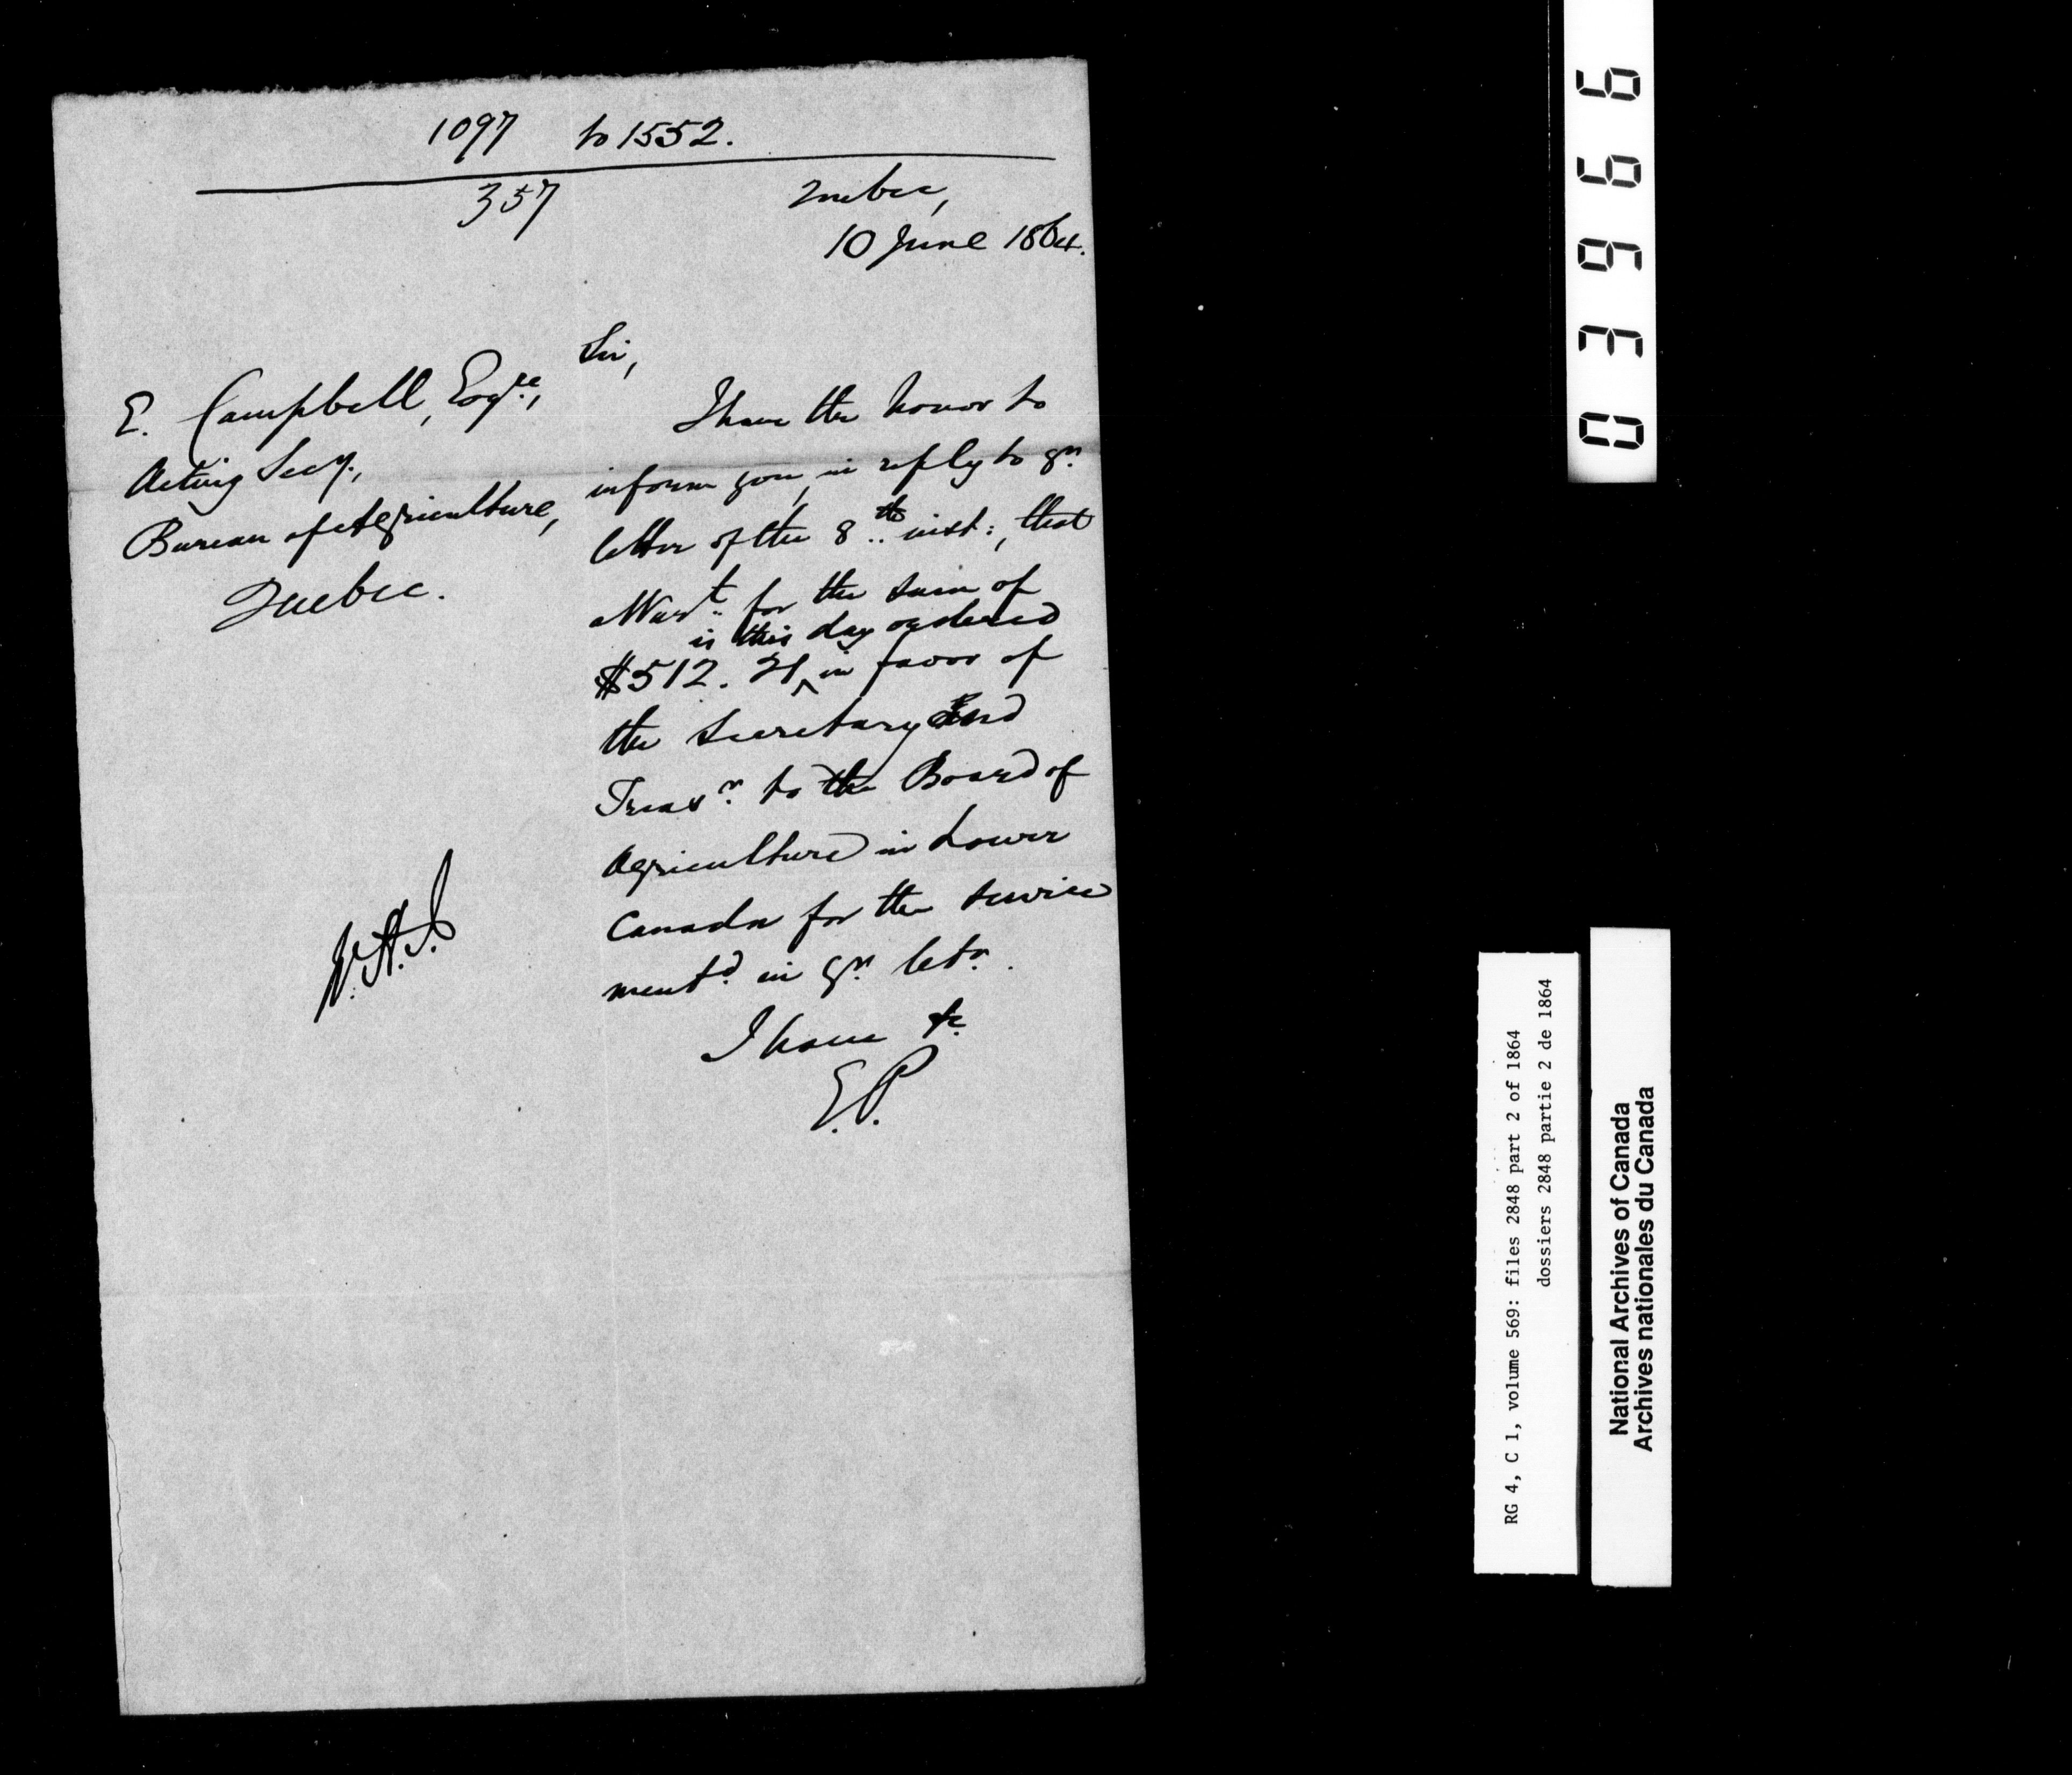 1097 to 1552.
357
Quebec,
10 June 1864.
E. Campbell, Esqre,
Acting Secy.,
Bureau of Agriculture,
Quebec.
Sir,
I have the honor to
inform you, in reply to yr.
letter of the 8th inst:, that
Warrt. for the sum of
is this day ordered
$512. 21 ^ in favor of
the Secretary and
Treasr. to the Board of
Agriculture in Lower
Canada for the service
mentd. in yr. letr.
I have &c.
E.P.
03966
RG 4, C 1, volume 569: files 2848 part 2 of 1864
dossiers 2848 partie 2 de 1864
National Archives of Canada
Archives nationales du Canada